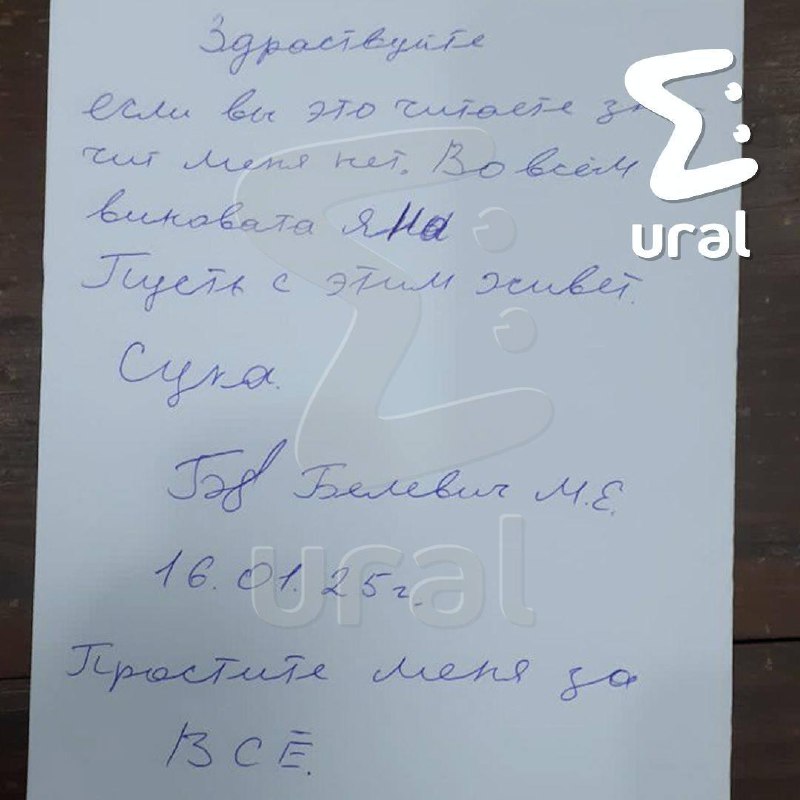 Здраствуйте
если вы это читаете зн
чит меня нет. Во всём
виновата яна
Пусть с этим живет.
Сука.
Белевич М.Е.
16.01.25г.
Простите меня за
ВСЁ.
ural
ural